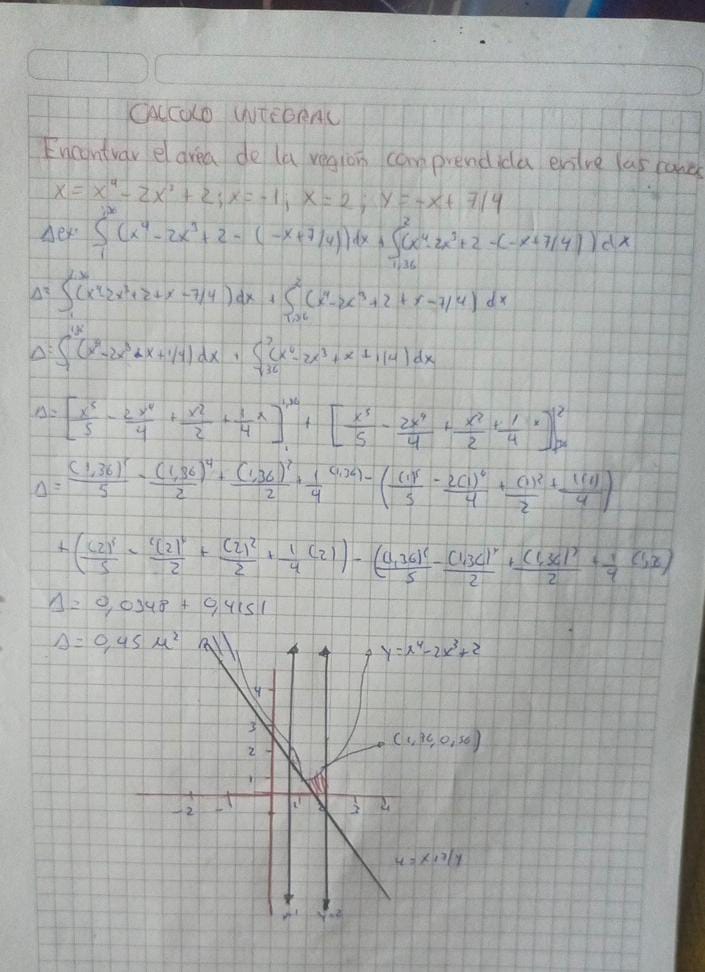 CALCULO INTEGRAL
Encontrar el area de la region comprendida entre las
x = x⁴ - 2x³ + 2; x = -1; x = 2; y = -x + 7/4
∫₁^1,36 (x⁴ - 2x³ + 2 - (-x + 7/4)) dx + ∫_1,36^2 (x⁴ - 2x³ + 2 - (-x + 7/4)) dx
A = ∫₁^1,36 (x⁴ - 2x³ + 2 + x - 7/4) dx + ∫_1,36^2 (x⁴ - 2x³ + 2 + x - 7/4) dx
A = ∫₁^1,36 (x⁴ - 2x³ + x + 1/4) dx + ∫_1,36^2 (x⁴ - 2x³ + x + 1/4) dx
A = [x⁵/5 - 2x⁴/4 + x²/2 + 1/4 x]₁^1,36 + [x⁵/5 - 2x⁴/4 + x²/2 + 1/4 x]_1,36^2
A = (1,36)⁵/5 - (1,36)⁴/2 + (1,36)²/2 + 1/4 (1,36) - ((1)⁵/5 - 2(1)⁴/4 + (1)²/2 + 1(1)/4)
+ ((2)⁵/5 - (2)⁴/2 + (2)²/2 + 1/4 (2)) - ((1,36)⁵/5 - (1,36)⁴/2 + (1,36)²/2 + 1/4
A = 0,0348 + 0,4151
A = 0,45 u²
y = x⁴ - 2x³ + 2
4
3
2
1
(1,36, 0,36)
-2 -1 1 2 3 4
y = x + 7/4
x=1 x=2